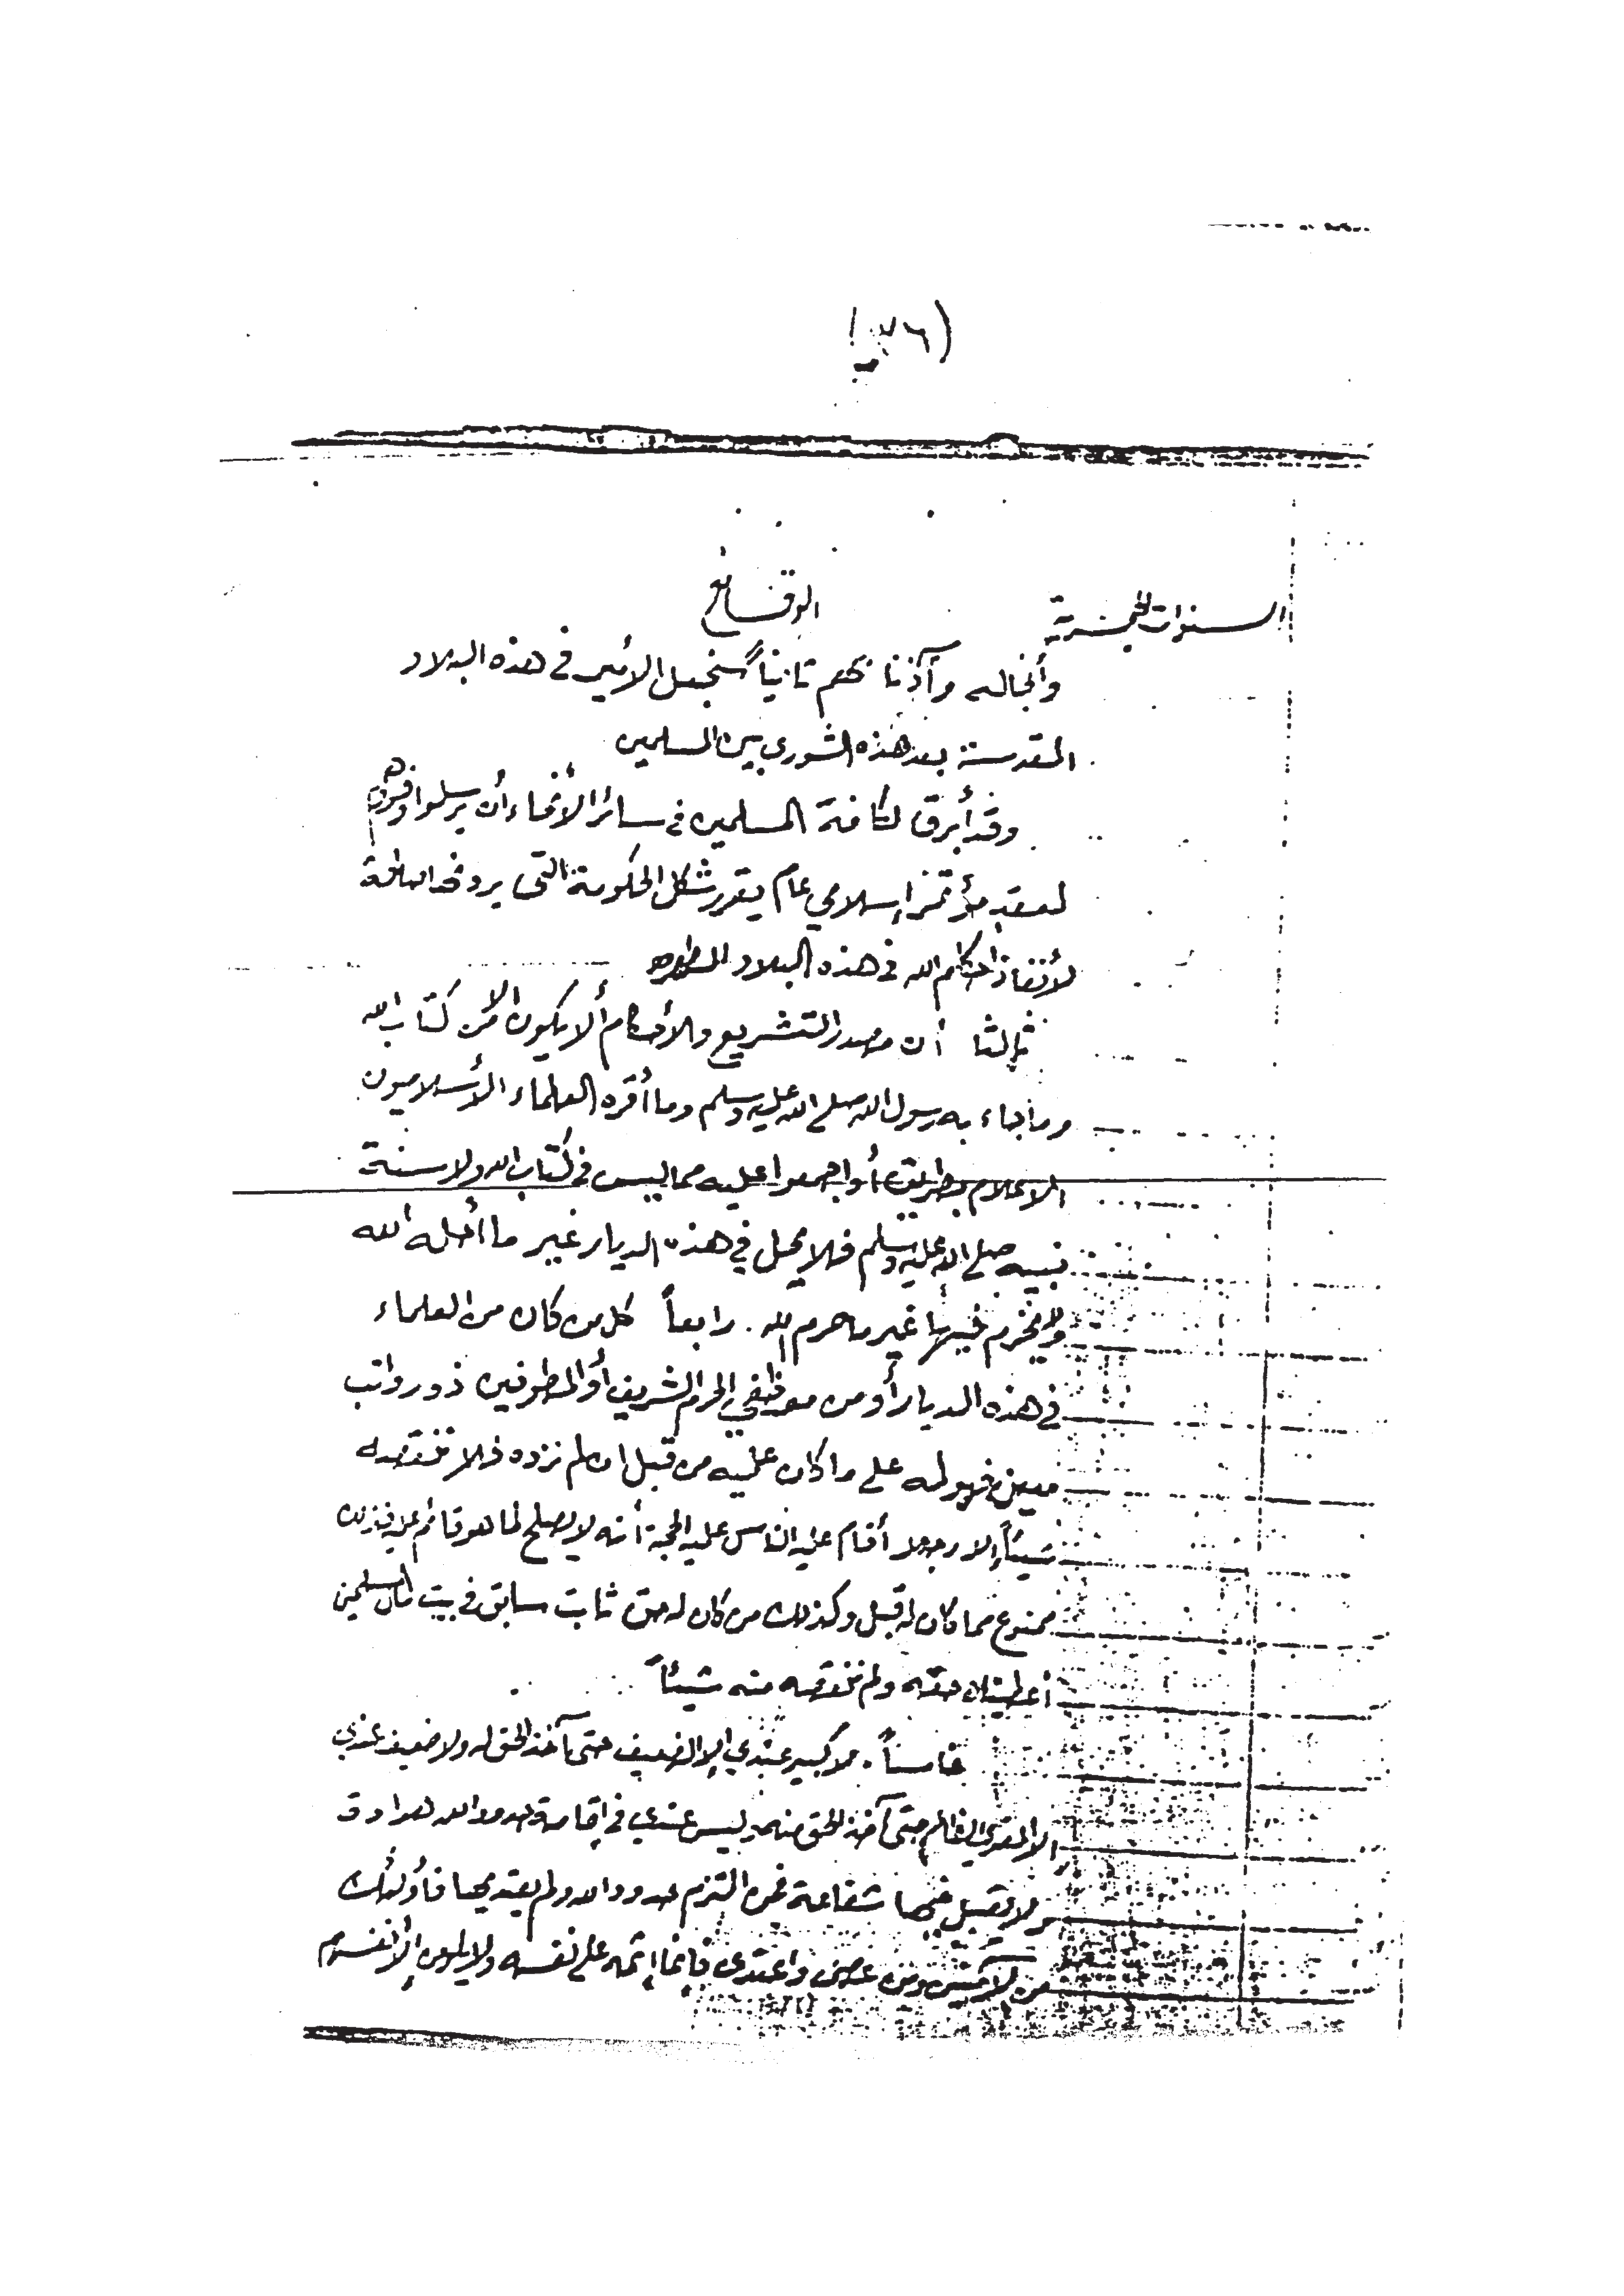 (٢٦
السنوات الهجرية
الوقائع
وأنجاله وآذنا بحكم ثانياً سنجعل الأمير في هذه البلاد
المقدسة بعد هذه الشورى بين المسلمين
وقد أبرق لكافة المسلمين في سائر الأنحاء أن يرسلوا وفودهم
لعقد مؤتمر إسلامي عام يقرر شكل الحكومة التي يرونها صالحة
لأنفاذ احكام الله في هذه البلاد المطهره
ثالثا أن مصدر التشريع والأحكام ألا يكون الا من كتاب الله
وما جاء به رسول الله صلى الله عليه وسلم وما أقره العلماء الأسلاميون
الاعلام بطريق أو اجمعوا عليه مما ليس في كتاب الله ولا سنة
نبيه صلى الله عليه وسلم فلا يحل في هذه الديار غير ما أحله الله
ولا يحرم فيها غير ما حرم الله . رابعاً كل من كان من العلماء
في هذه الديار أو من موظفي الحرم الشريف أو المطوفين ذو رواتب
معين فهو له على ما كان عليه من قبل ان لم نزده فلا ننقصه
شيئاً إلا رجلا أقام عليه الناس عليه الحجة أنه لا يصلح لما هو قائم عليه فذلك
ممنوع مما كان له قبل وكذلك من كان له حق ثابت سابق في بيت مال المسلمين
أعطيناه حقه ولم ننقصه منه شيئاً
خامساً . لا كبير عندي إلا الضعيف حتى آخذ الحق له ولا ضعيف عندي
الا القوي الظالم حتى آخذ الحق منه وليس عندي في إقامة حدود الله هوادة
ولا نقبل فيها شفاعة فمن التزم حدود الله ولم يعتديها فأولئك
من الآمنين ومن عصى واعتدى فإنما إثمه على نفسه ولا يلومن إلا نفسه